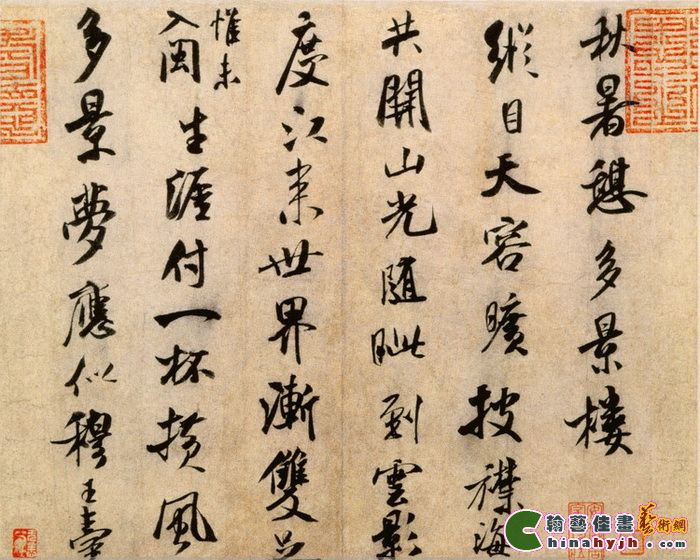 秋暑憩多景樓
縱目天容曠披襟海
共開山光隨眦到雲影
度江來世界漸雙足
惟未
入閩生涯付一杯橫風
多景夢應似穆王臺
翰藝佳畫藝術網
Chinahyjh.com